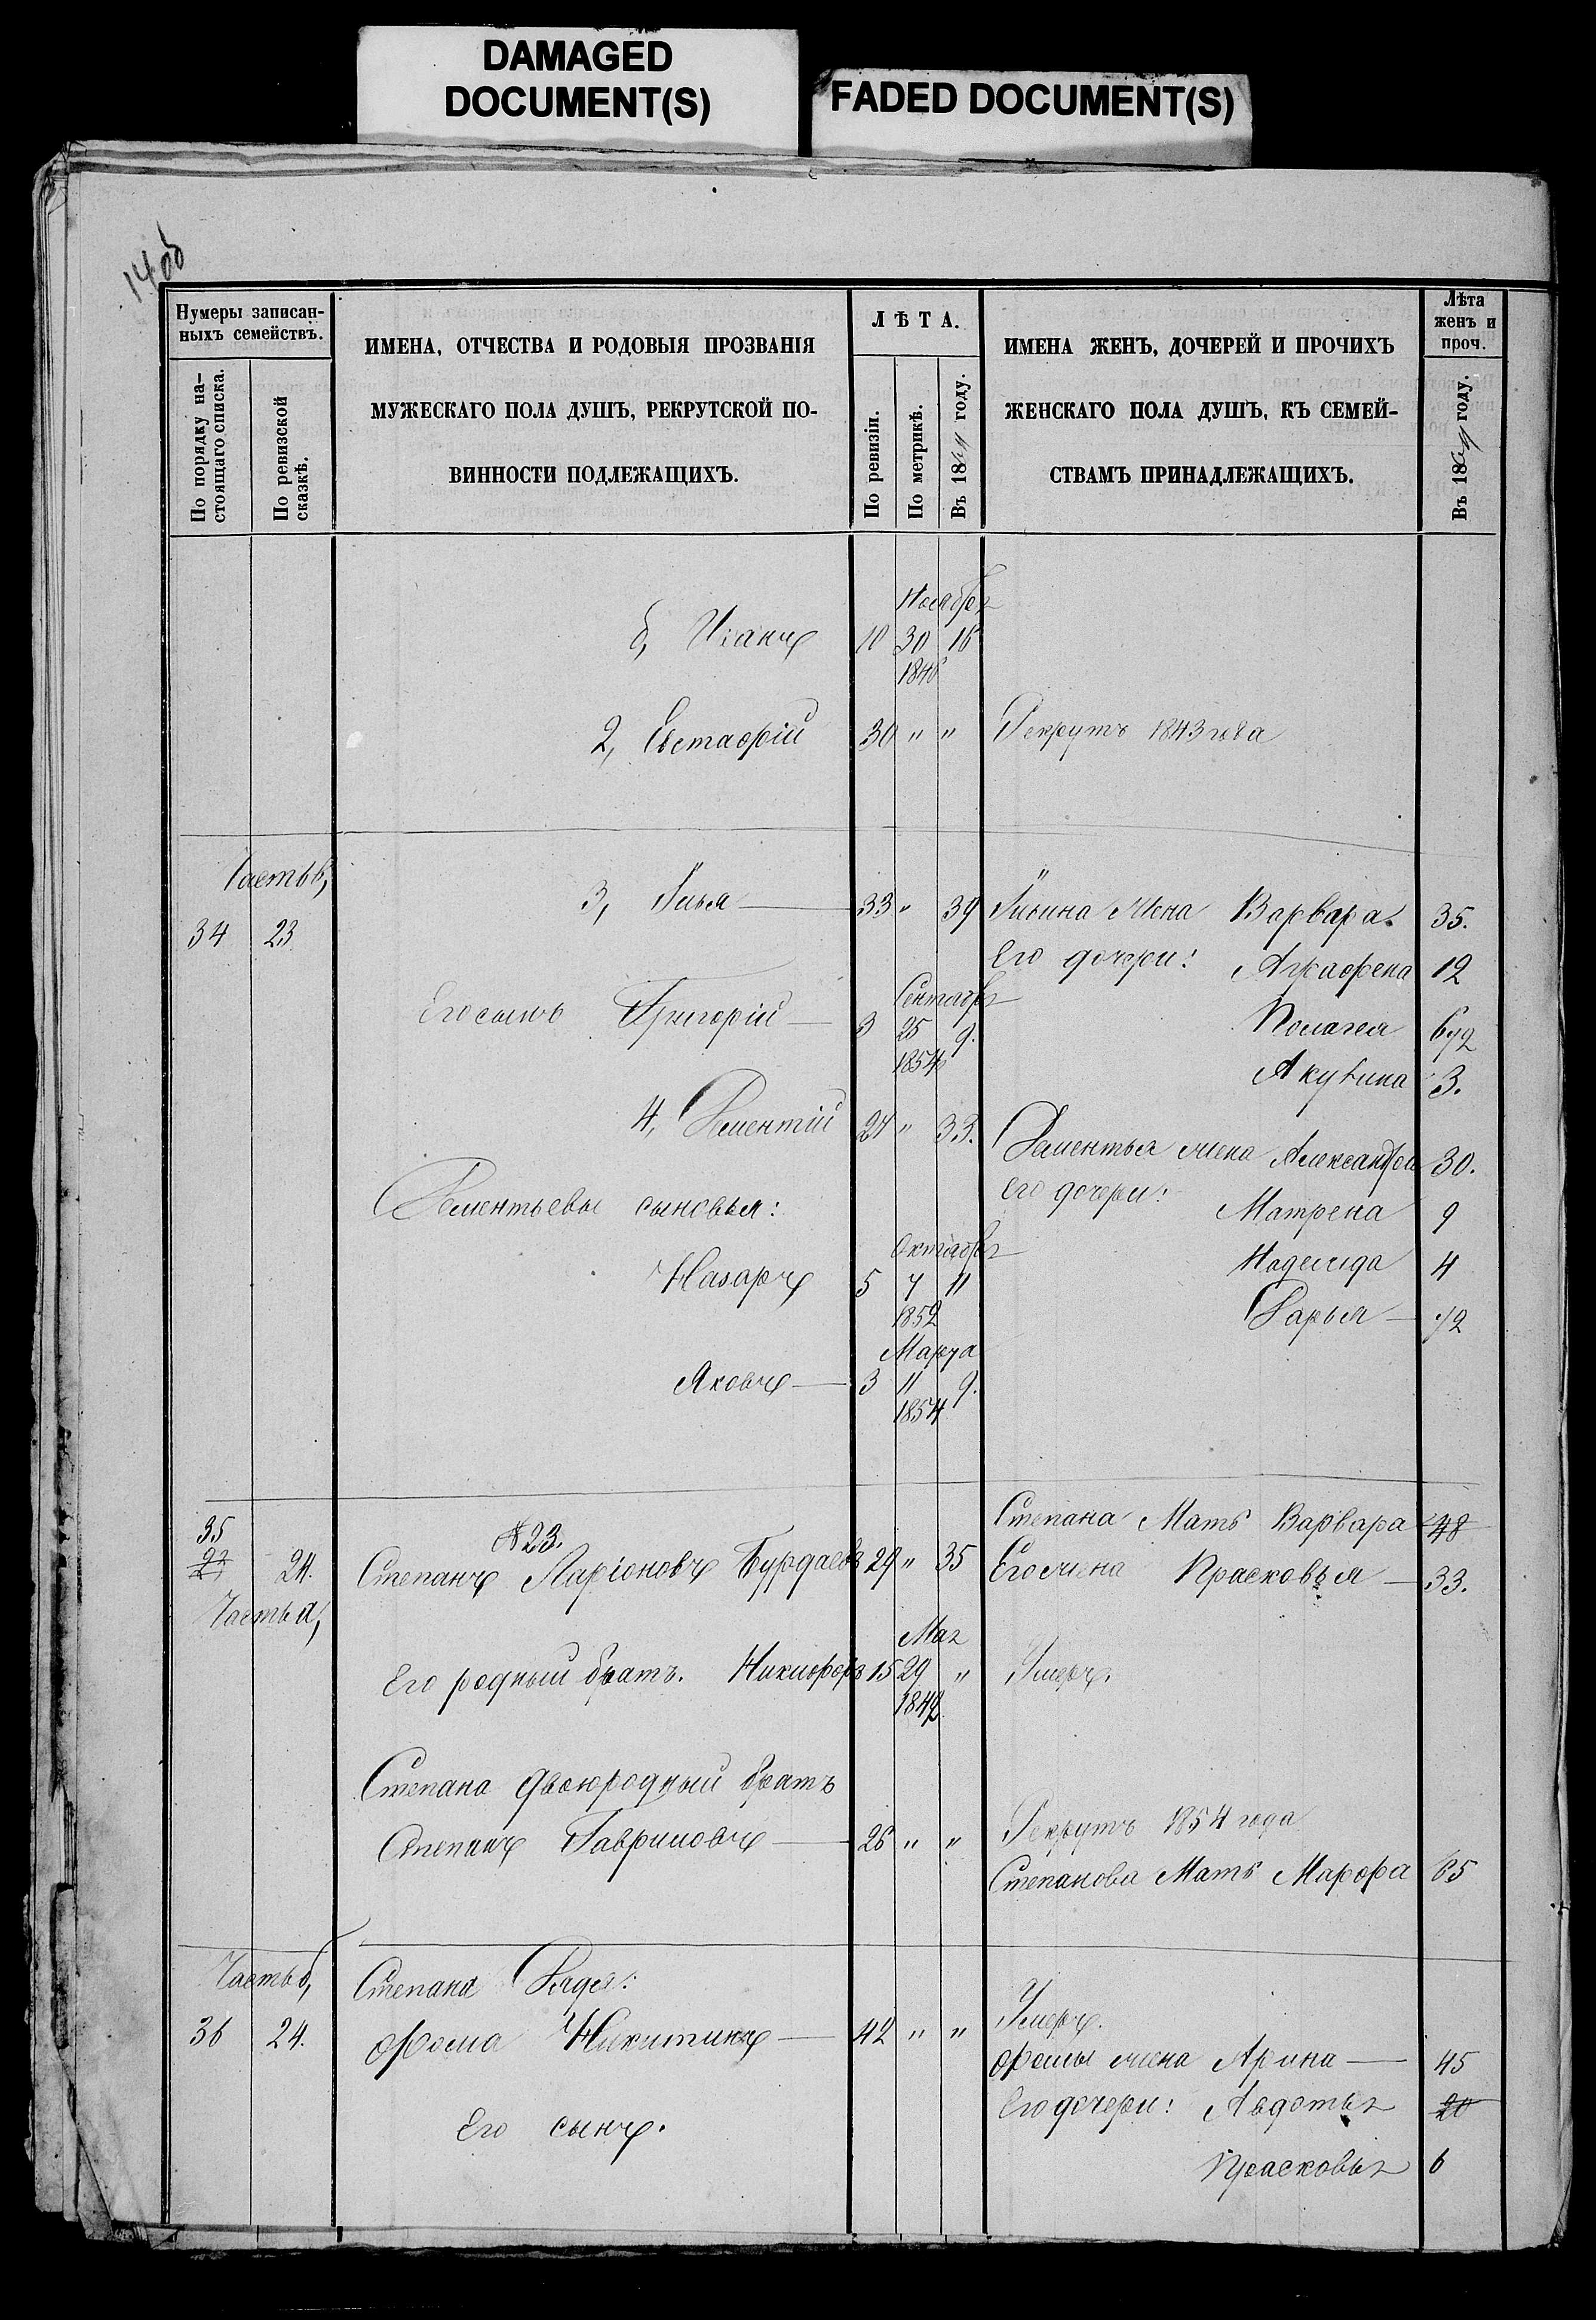 DAMAGED
DOCUMENT(S)
FADED DOCUMENT(S)
14об
Нумеры записан-
ныхъ семействъ.
По порядку на-
стоящаго списка.
По ревизской
сказкѣ.
ИМЕНА, ОТЧЕСТВА И РОДОВЫЯ ПРОЗВАНІЯ
МУЖЕСКАГО ПОЛА ДУШЪ, РЕКРУТСКОЙ ПО-
ВИННОСТИ ПОДЛЕЖАЩИХЪ.
ЛѢТА.
По ревизіи.
По метрикѣ.
Въ 18 году.
ИМЕНА ЖЕНЪ, ДОЧЕРЕЙ И ПРОЧИХЪ
ЖЕНСКАГО ПОЛА ДУШЪ, КЪ СЕМЕЙ-
СТВАМЪ ПРИНАДЛЕЖАЩИХЪ.
Лѣта
женъ и
проч.
Въ 18 году.
Ноября
б, Иванъ 10 30 16
1846
2, Евстафій 30 " " Рекрутъ 1843 года
Часть в,
34 23
3, Илья — 33 " 39 Ильина жена Варвара 35.
Его дочери: Аграфена 12
Сентября
Его сынъ Григорій — 3 25 9. Пелагея 6 7/12
1854
Акулина 3.
4, Дементій 27 " 33. Дементья жена Александра 30.
Дементьевы сыновья: Его дочери: Матрена 9
Октября
Назаръ 5 7 11 Надежда 4
1852
Дарья —
Марта
Яковъ — 3 11 9.
1854
35
23 24.
Часть а,
№ 23.
Степана Мать Варвара 48
Степанъ Ларіоновъ Бурдаевъ 29 " 35 Его жена Прасковья — 33.
Мая
Его родный братъ. Никифоръ 15 29 " Умеръ.
1842
Степана двоюродный братъ
Степанъ Гавриловъ — 26 " " Рекрутъ 1854 года
Степанова Мать Марфа 65
Часть б,
Степана Дядя:
36 24. Фома Никитинъ — 42 " " Умеръ.
Фомы жена Арина — 45
Его сынъ. Его дочери: Авдотья 20
Прасковья 6